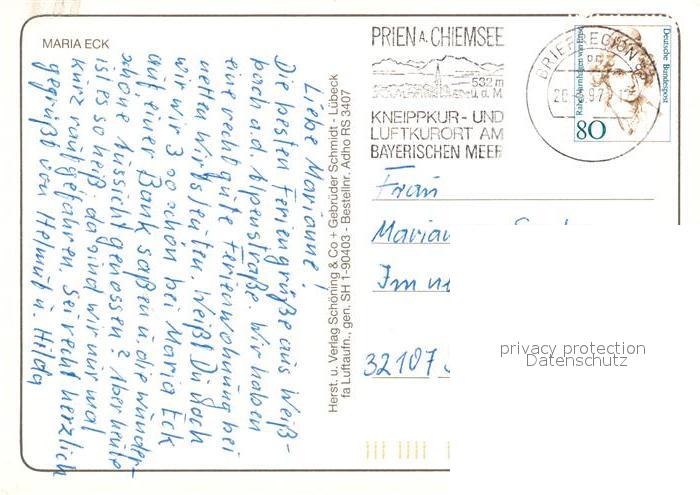 MARIA ECK
Liebe Marianne!
Die besten Feriengrüße aus Weiß-
bach a.d. Alpenstraße. Wir haben
eine recht gute Ferienwohnung bei
netten Wirtsleuten. Weißt Du doch
wir wir 3 so schön bei Maria Eck
auf einer Bank saßen u. die wunder-
schöne Aussicht genossen? Aber heute
ist es so heiß. da sind wir nur mal
kurz raufgefahren. Sei recht herzlich
gegrüßt von Helmut u. Hilda
Herst. u. Verlag Schöning & Co + Gebrüder Schmidt - Lübeck
fa Luftaufn., gen. SH 1-90403 - Bestellnr. Adho RS 3407
PRIEN A. CHIEMSEE
532 m
ü. d. M
KNEIPPKUR - UND
LUFTKURORT AM
BAYERISCHEN MEER
BRIEFREGION
Deutsche Bundespost
Rahel Varnhagen von Ense
80
Frau
Im
32107
privacy protection
Datenschutz